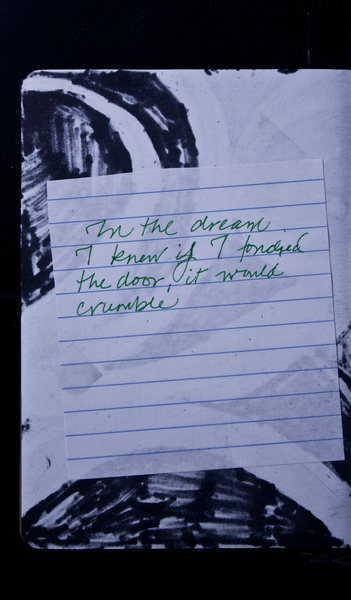 In the dream
I knew if I
the door, it would
crumble